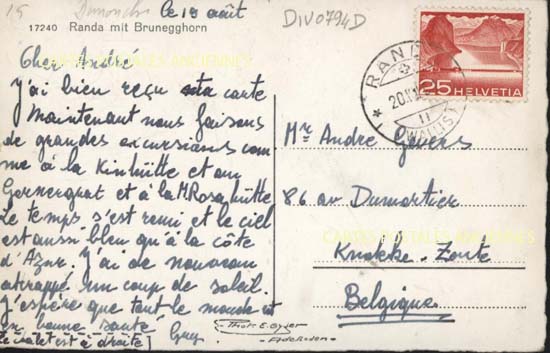 15 Dimanche le 19 août DIV0794D
17240 Randa mit Brunegghorn
Cher André
J'ai bien reçu ta carte
Maintenant nous faisons
de grandes excursions com
me à la Kinhütte et au
Gornergrat et à la M. Rosahütte
Le temps s'est remi et le ciel
est aussi bleu qu'à la côte
d'Azur. J'ai de nouveau
attrappé un coup de soleil.
J'espère que tout le monde est
en bonne santé. Guy
[Le châlet est à droite]
Mr Andre Gevers
86 av Dumortier
Knokke-Zoute
Belgique
RANDA
20.
(WALLIS)
25 HELVETIA
CARTES POSTALES ANCIENNES
CARTES POSTALES ANCIENNES
Phot. E. Gyger
Adelboden